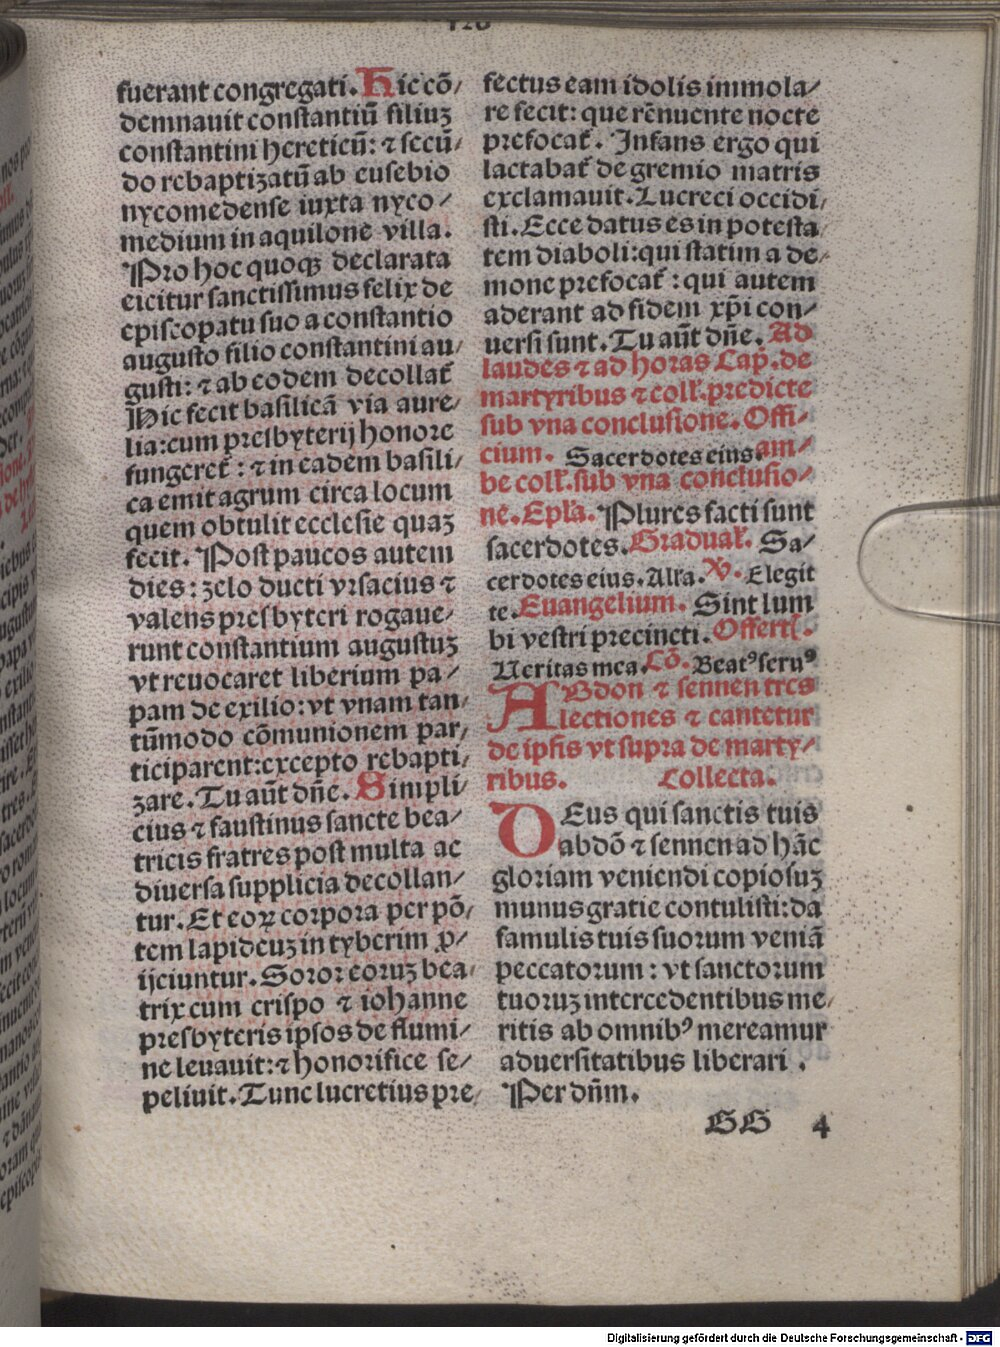 fuerant congregati. Hic cō/
demnauit constantiū filiuꝫ
constantini hereticū: ⁊ secū/
do rebaptizatū ab eusebio
nycomedense iuxta nyco/
medium in aquilone villa.
Pro hoc quoqꝫ declarata
eicitur sanctissimus felix de
episcopatu suo a constantio
augusto filio constantini au/
gusti: ⁊ ab eodem decollat̄
Hic fecit basilicā via aure/
lia: cum presbyterij honore
fungeret̄: ⁊ in eadem basili/
ca emit agrum circa locum
quem obtulit ecclesie quaꝫ
fecit. Post paucos autem
dies: zelo ducti vrsacius ⁊
valens presbyteri rogaue/
runt constantium augustuꝫ
vt reuocaret liberium pa/
pam de exilio: vt vnam tan/
tūmodo cōmunionem par/
ticiparent: excepto rebapti/
zare. Tu aūt dn̄e. Simpli/
cius ⁊ faustinus sancte bea/
tricis fratres post multa ac
diuersa supplicia decollan/
tur. Et eoꝝ corpora per pō/
tem lapideuꝫ in tyberim ꝓ/
ijciuntur. Soror eoruꝫ bea/
trix cum crispo ⁊ iohanne
presbyteris ipsos de flumi/
ne leuauit: ⁊ honorifice se/
peliuit. Tunc lucretius pre/
fectus eam idolis immola/
re fecit: que rēnuente nocte
prefocat̄. Infans ergo qui
lactabat̄ de gremio matris
exclamauit. Lucreci occidi/
sti. Ecce datus es in potesta/
tem diaboli: qui statim a de/
mone prefocat̄: qui autem
aderant ad fidem xp̄i con/
uersi sunt. Tu aūt dn̄e. Ad
laudes ⁊ ad horas Cap̄. de
martyribus ⁊ coll̄. predicte
sub vna conclusione. Offi/
cium. Sacerdotes eius. am/
be coll̄. sub vna conclusio/
ne. Epl̄a. Plures facti sunt
sacerdotes. Gradual̄. Sa/
cerdotes eius. All̄a. ℣. Elegit
te. Euangelium. Sint lum
bi vestri precincti. Offert̄.
Ueritas mea. Cō. Beatꝰ seruꝰ
ABdon ⁊ sennen tres
lectiones ⁊ cantetur
de ipsis vt supra de marty/
ribus. Collecta.
DEus qui sanctis tuis
abdō ⁊ sennen ad hāc
gloriam veniendi copiosuꝫ
munus gratie contulisti: da
famulis tuis suorum veniā
peccatorum: vt sanctorum
tuoruꝫ intercedentibus me/
ritis ab omnibꝰ mereamur
aduersitatibus liberari.
Per dn̄m.
GG 4
Digitalisierung gefördert durch die Deutsche Forschungsgemeinschaft - DFG